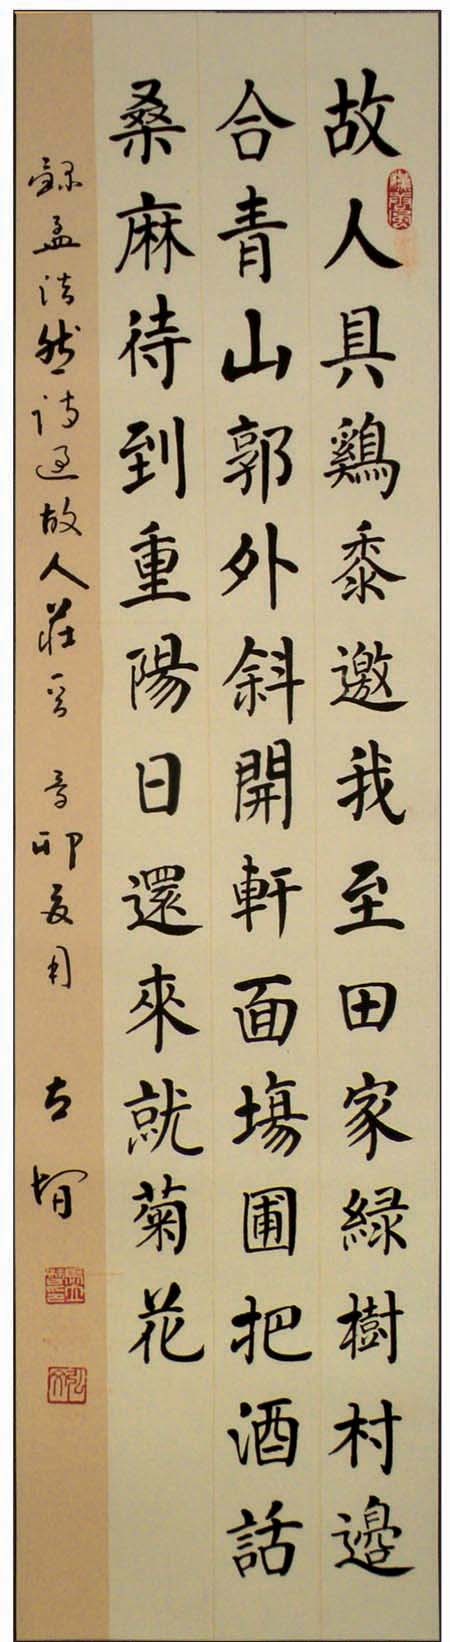 故人具鷄黍邀我至田家緑樹村邊
合青山郭外斜開軒面塲圃把酒話
桑麻待到重陽日還來就菊花
錄孟浩然詩過故人莊 卯夏月 古